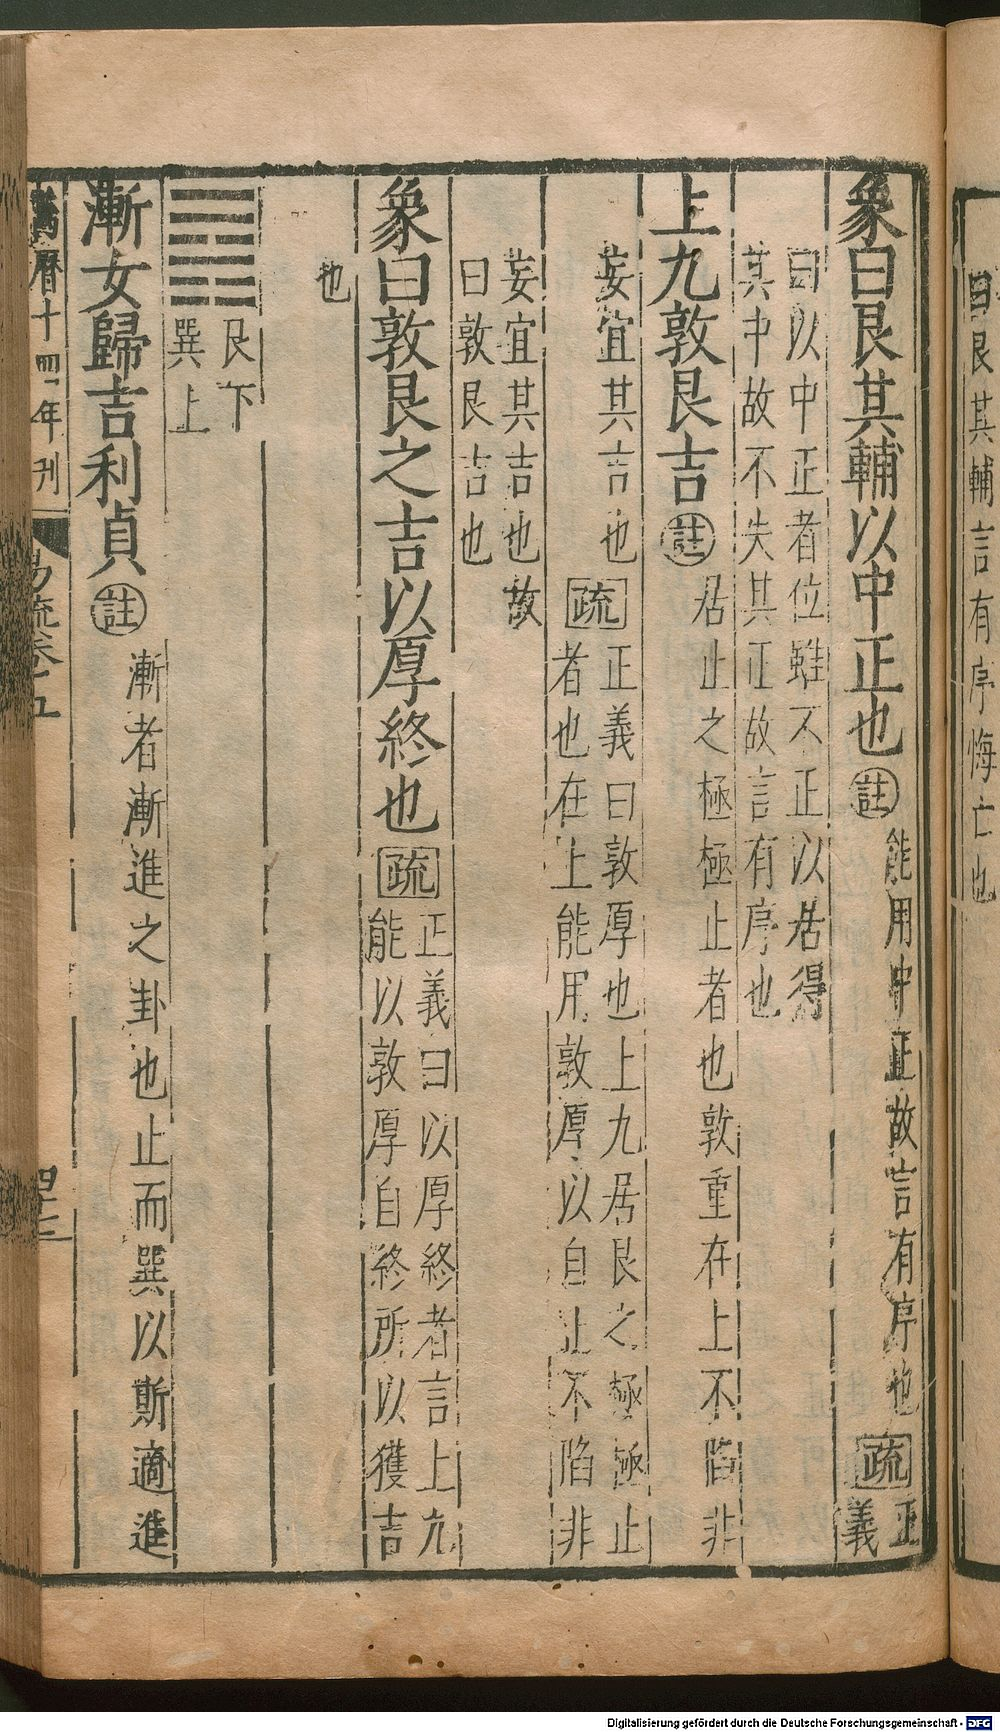 曰艮其輔言有序悔亡也
象曰艮其輔以中正也註能用中正故言有序也疏正義
曰以中正者位雖不正以居得
其中故不失其正故言有序也
上九敦艮吉註居止之極極止者也敦重在上不陷非
妄宜其吉也疏正義曰敦厚也上九居艮之極極止
者也在上能用敦厚以自止不陷非
妄宜其吉也故
曰敦艮吉也
象曰敦艮之吉以厚終也疏正義曰以厚終者言上九
能以敦厚自終所以獲吉
也
艮下
巽上
漸女歸吉利貞註漸者漸進之卦也止而巽以斯適進
萬曆十四年刊
易疏卷五
四十三
Digitalisierung gefördert durch die Deutsche Forschungsgemeinschaft - DFG